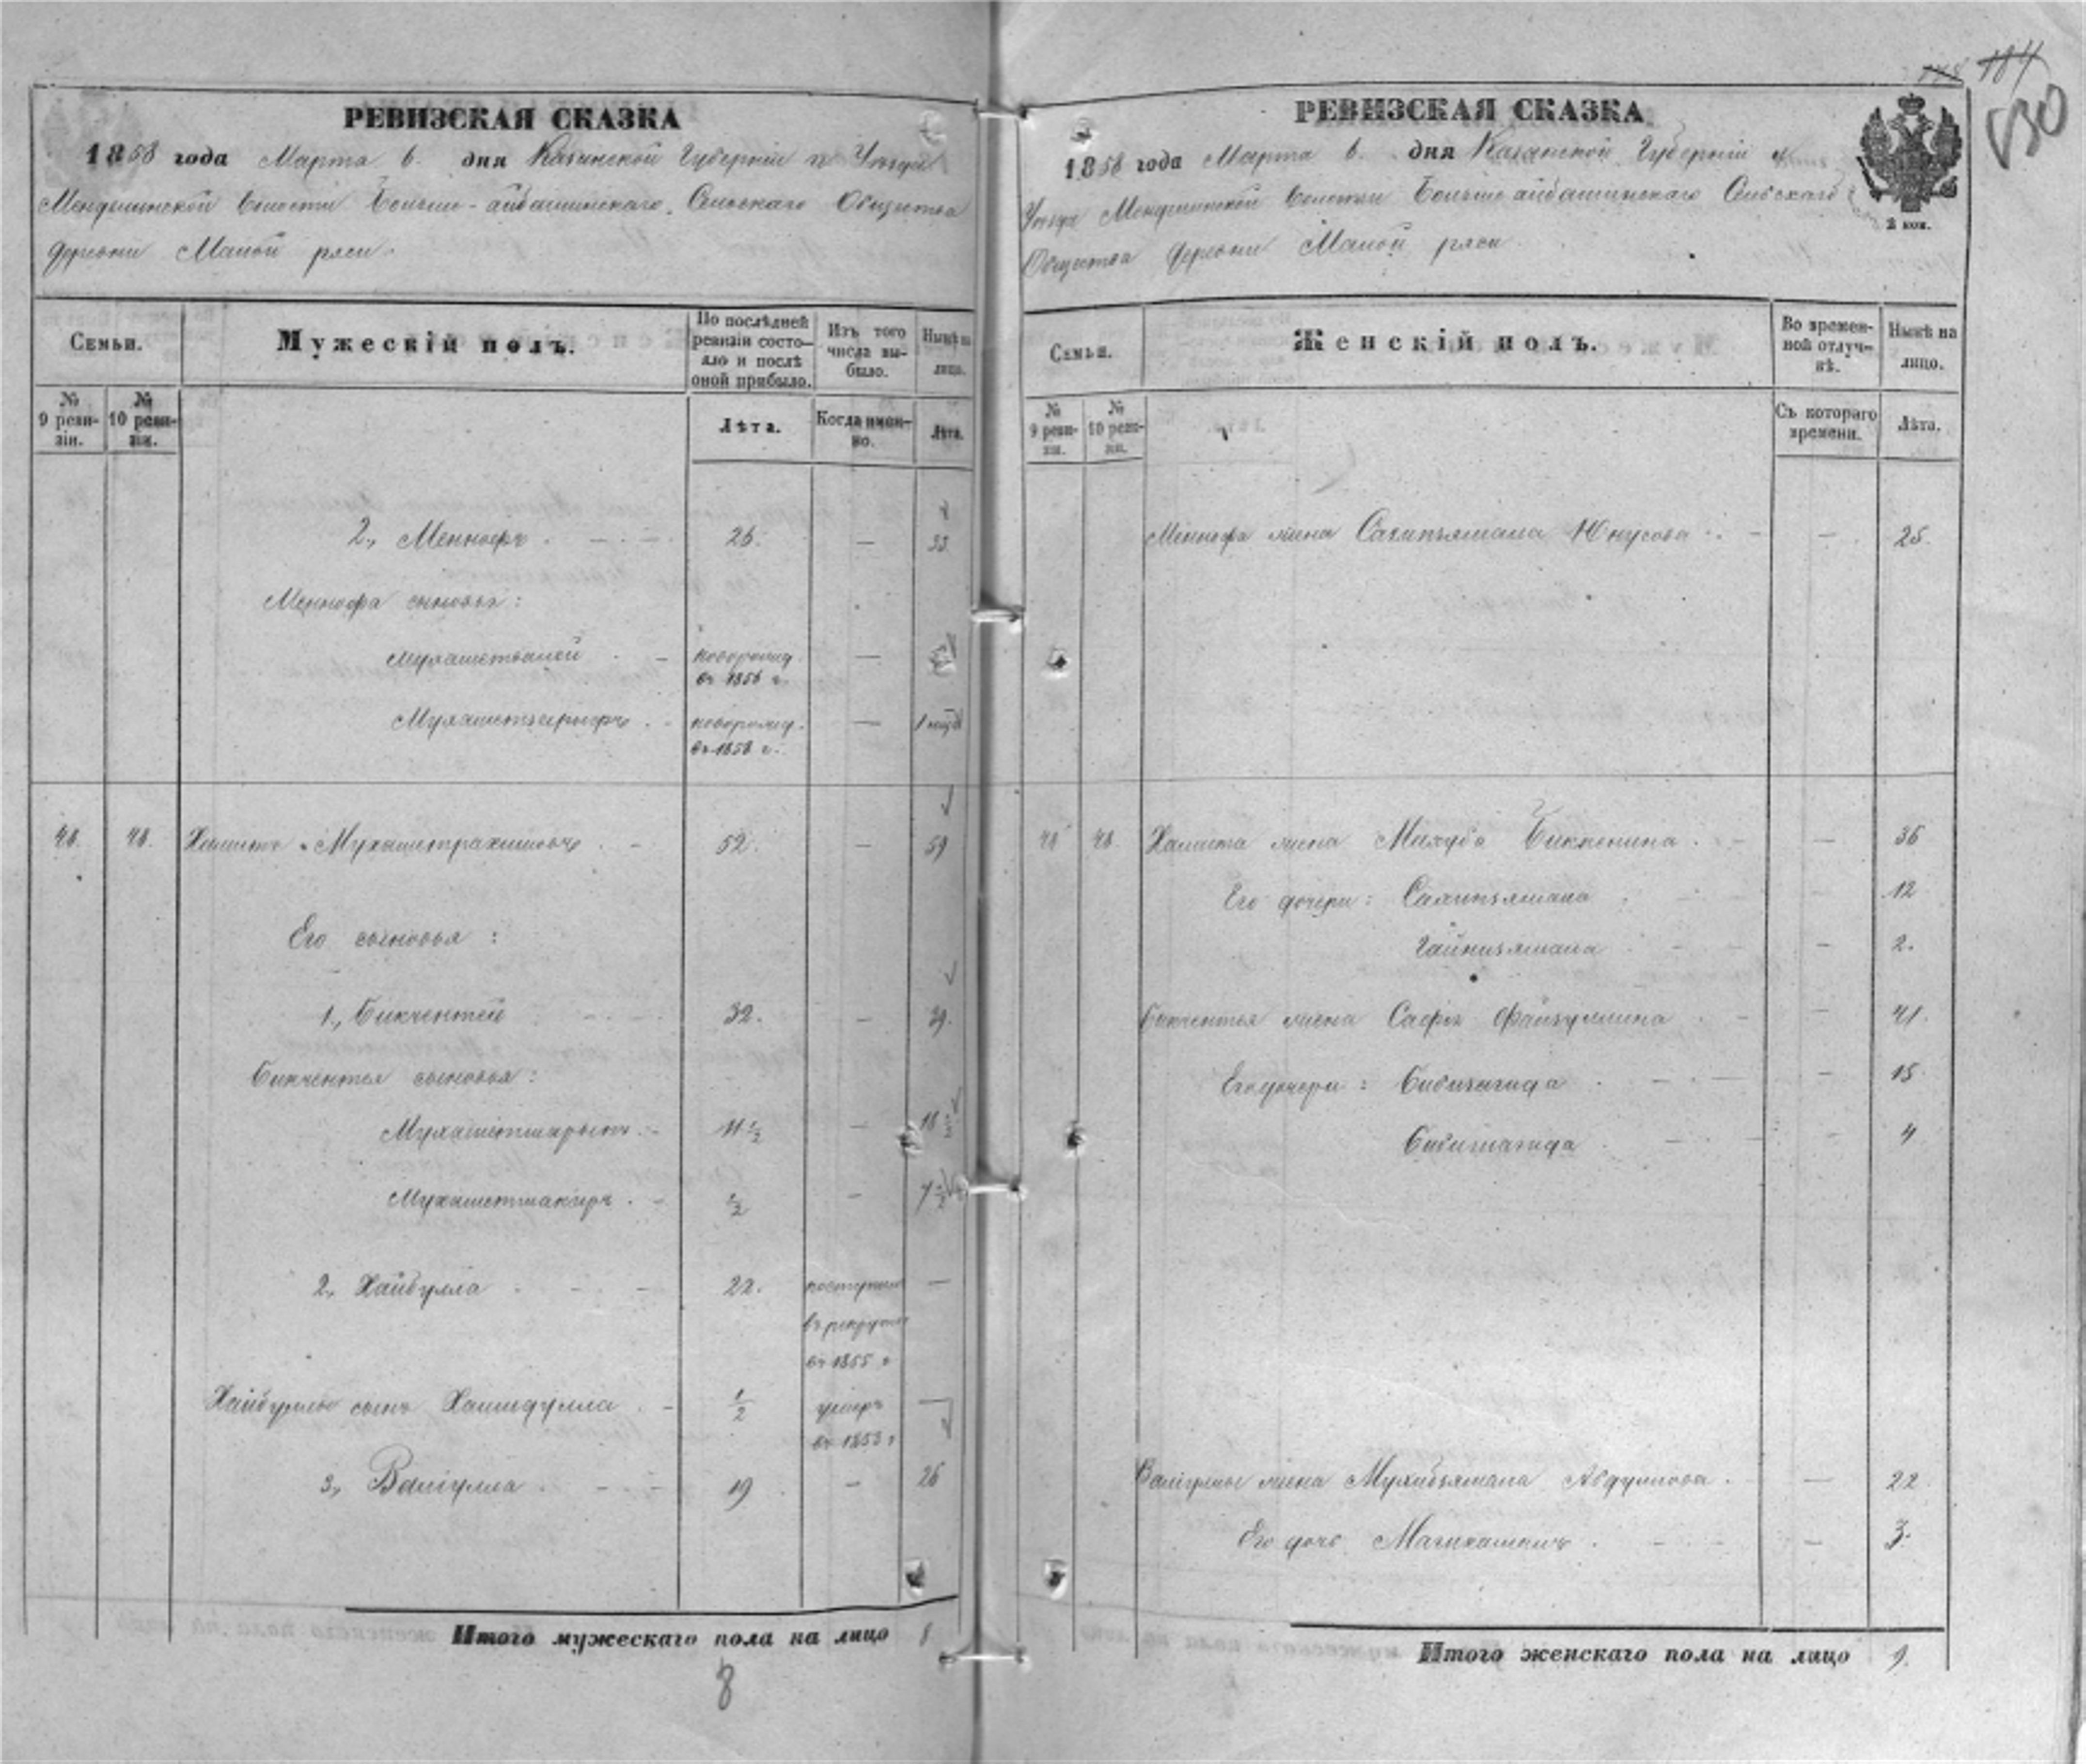 148 184
530
РЕВИЗСКАЯ СКАЗКА
1858 года Марта 6. дня Казанской Губерніи и Уѣзда
Мендѣлинской Волости Больше-айбашинскаго Сельскаго Общества
деревни Малой ряси.
Семьи.
Мужескій полъ.
По послѣдней ревизіи состояло и послѣ оной прибыло.
Изъ того числа выбыло.
Нынѣ на лицо.
№ 9 ревизіи.
№ 10 ревизіи.
Лѣта.
Когда именно.
Лѣта.
2., Меннафъ 26. — 33
Меннафа сыновья:
Мухаметвалей новорожд. —
въ 1856 г.
Мухаметзарифъ новорожд. — 1 мѣс.
въ 1858 г.
48. 48. Хамитъ Мухаметрахимовъ 52. — 59
Его сыновья:
1., Бикчентей 32. — 39.
Бикчентея сыновья:
Мухаметшарыпъ 11 1/2 — 18 1/2
Мухаметшакиръ 1/2 — 7 1/2
2., Хайбулла 22. поступилъ —
въ рекруты
въ 1855 г
Хайбуллы сынъ Хамидулла 1/2 умеръ —
въ 1853 г
3., Валиулла 19 — 26
Итого мужескаго пола на лицо 8
8
РЕВИЗСКАЯ СКАЗКА
1858 года Марта 6. дня Казанской Губерніи и
Уѣзда Мендѣлинской Волости Больше айбашинскаго Сельскаго
Общества деревни Малой ряси
2 коп.
Семьи.
Женскій полъ.
Во временной отлучкѣ.
Нынѣ на лицо.
№ 9 ревизіи.
№ 10 ревизіи.
Съ котораго времени.
Лѣта.
Меннафа жена Сахипзямала Юнусова — 25.
48 48. Хамита жена Махуба Биккенина — 36
Его дочери: Салипзямала 12
Гайнизямала — 2.
Бикчентея жена Сафія Файзуллина — 41.
Его дочери: Бибизагида — 15.
Бибишагида — 4
Валиуллы жена Мухибзямала Абдуллова — 22
Его дочь — 3.
Итого женскаго пола на лицо 9.